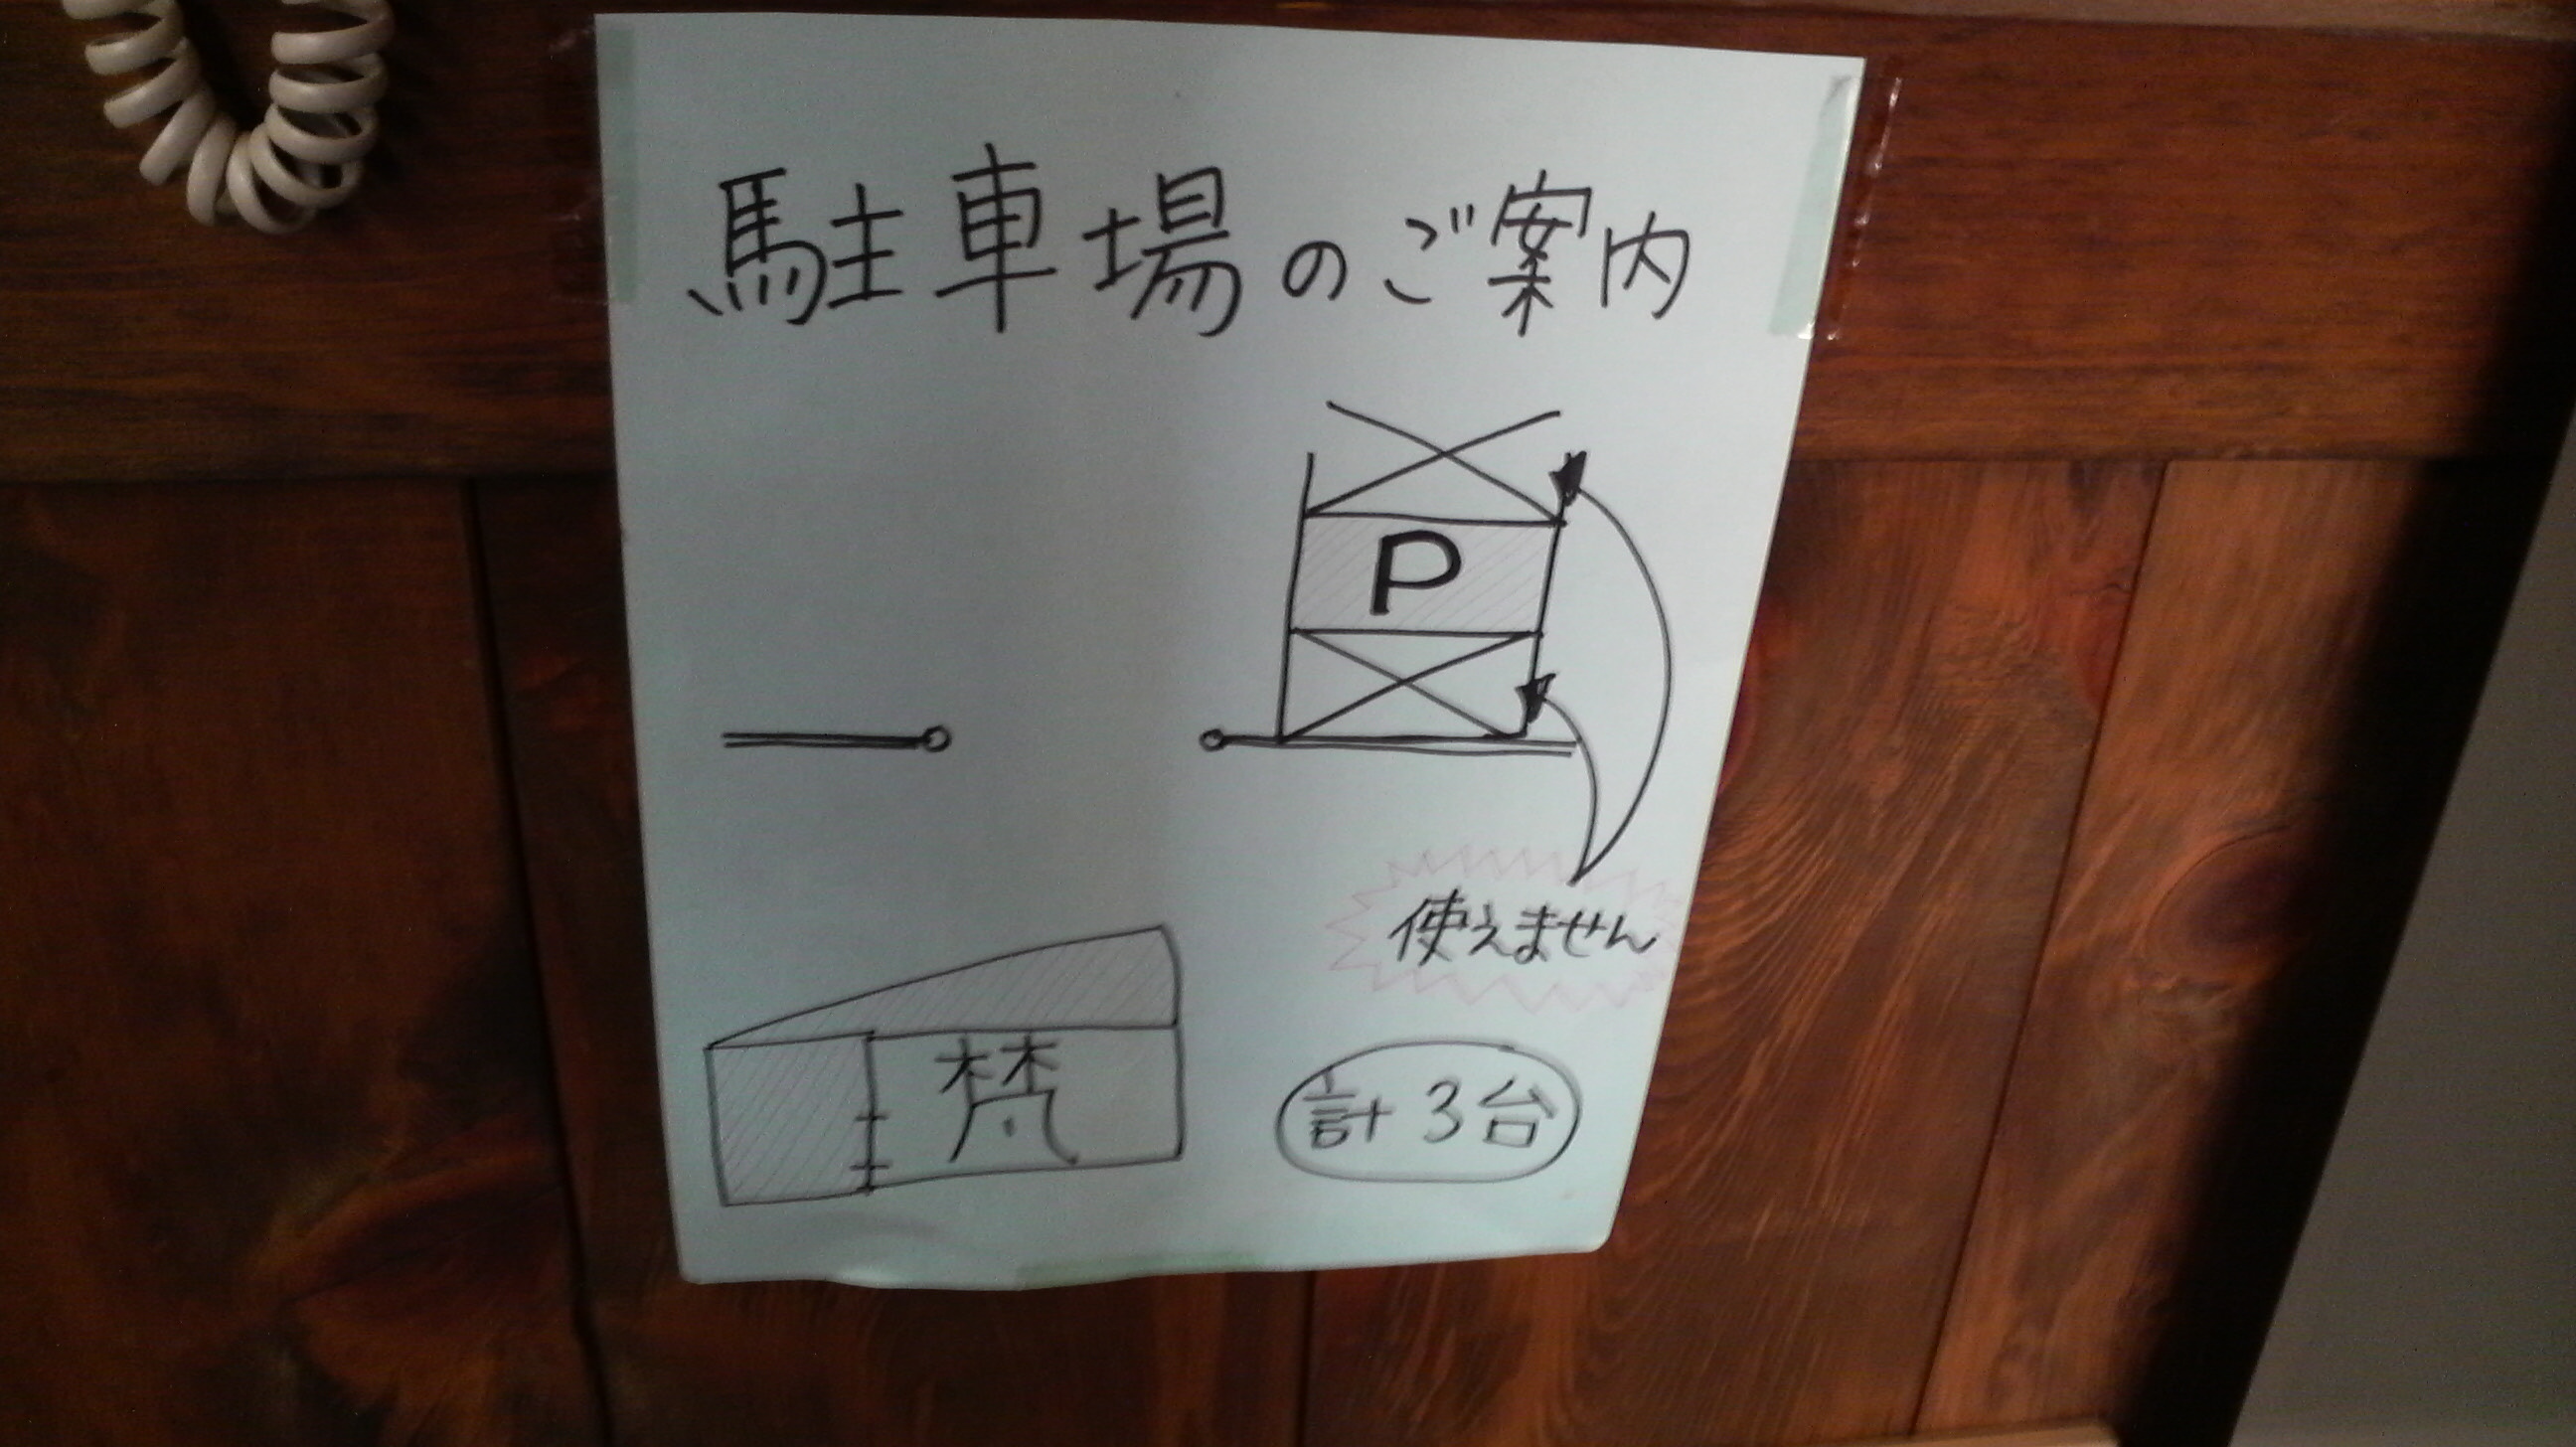 駐車場のご案内
P
使えません
梵
計3台